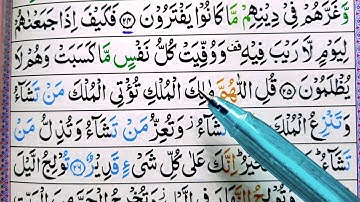 وَّغَرَّهُمْ فِيْ دِيْنِهِمْ مَّا كَانُوْا يَفْتَرُوْنَ ﴿۲۴﴾ فَكَيْفَ اِذَا جَمَعْنٰهُمْ
لِيَوْمٍ لَّا رَيْبَ فِيْهِ ۫ وَوُفِّيَتْ كُلُّ نَفْسٍ مَّا كَسَبَتْ وَهُمْ لَا
يُظْلَمُوْنَ ﴿۲۵﴾ قُلِ اللّٰهُمَّ مٰلِكَ الْمُلْكِ تُؤْتِي الْمُلْكَ مَنْ تَشَآءُ
وَتَنْزِعُ الْمُلْكَ تَشَآءُ ۫ وَتُعِزُّ مَنْ تَشَآءُ وَتُذِلُّ مَنْ
تَشَآءُ الْخَيْرُ ؕ اِنَّكَ عَلٰى كُلِّ شَيْءٍ قَدِيْرٌ ﴿۲۶﴾ تُوْلِجُ الَّيْلَ